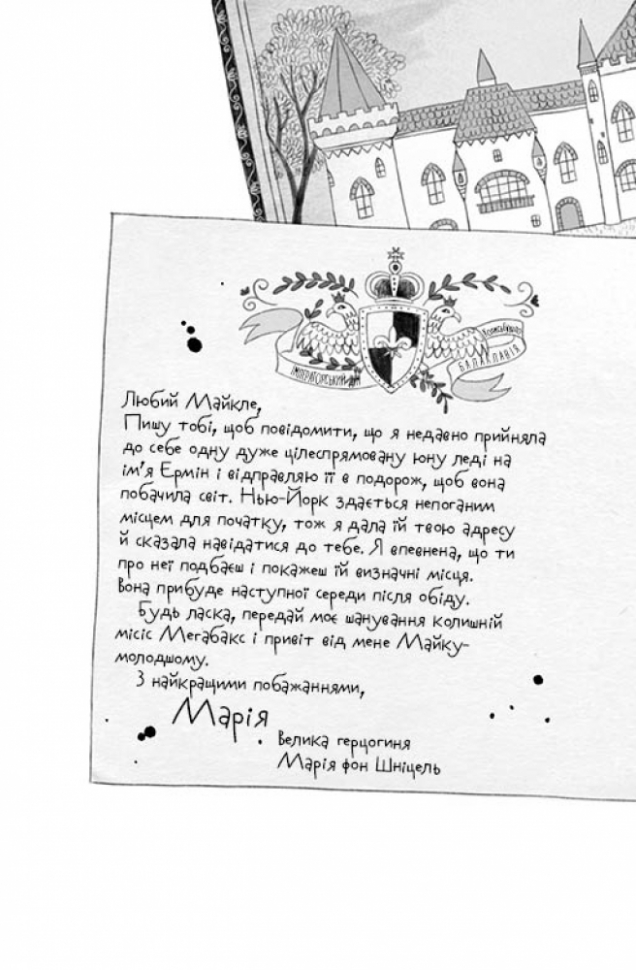 ІМПЕРАТОРСЬКИЙ ДІМ
БАЛАКЛАВІЯ
Любий Майкле,
Пишу тобі, щоб повідомити, що я недавно прийняла
до себе одну дуже цілеспрямовану юну леді на
ім'я Ермін і відправляю її в подорож, щоб вона
побачила світ. Нью-Йорк здається непоганим
місцем для початку, тож я дала їй твою адресу
й сказала навідатися до тебе. Я впевнена, що ти
про неї подбаєш і покажеш їй визначні місця.
Вона прибуде наступної середи після обіду.
Будь ласка, передай моє шанування колишній
місіс Мегабакс і привіт від мене Майку-
молодшому.
З найкращими побажаннями,
Марія
Велика герцогиня
Марія фон Шніцель